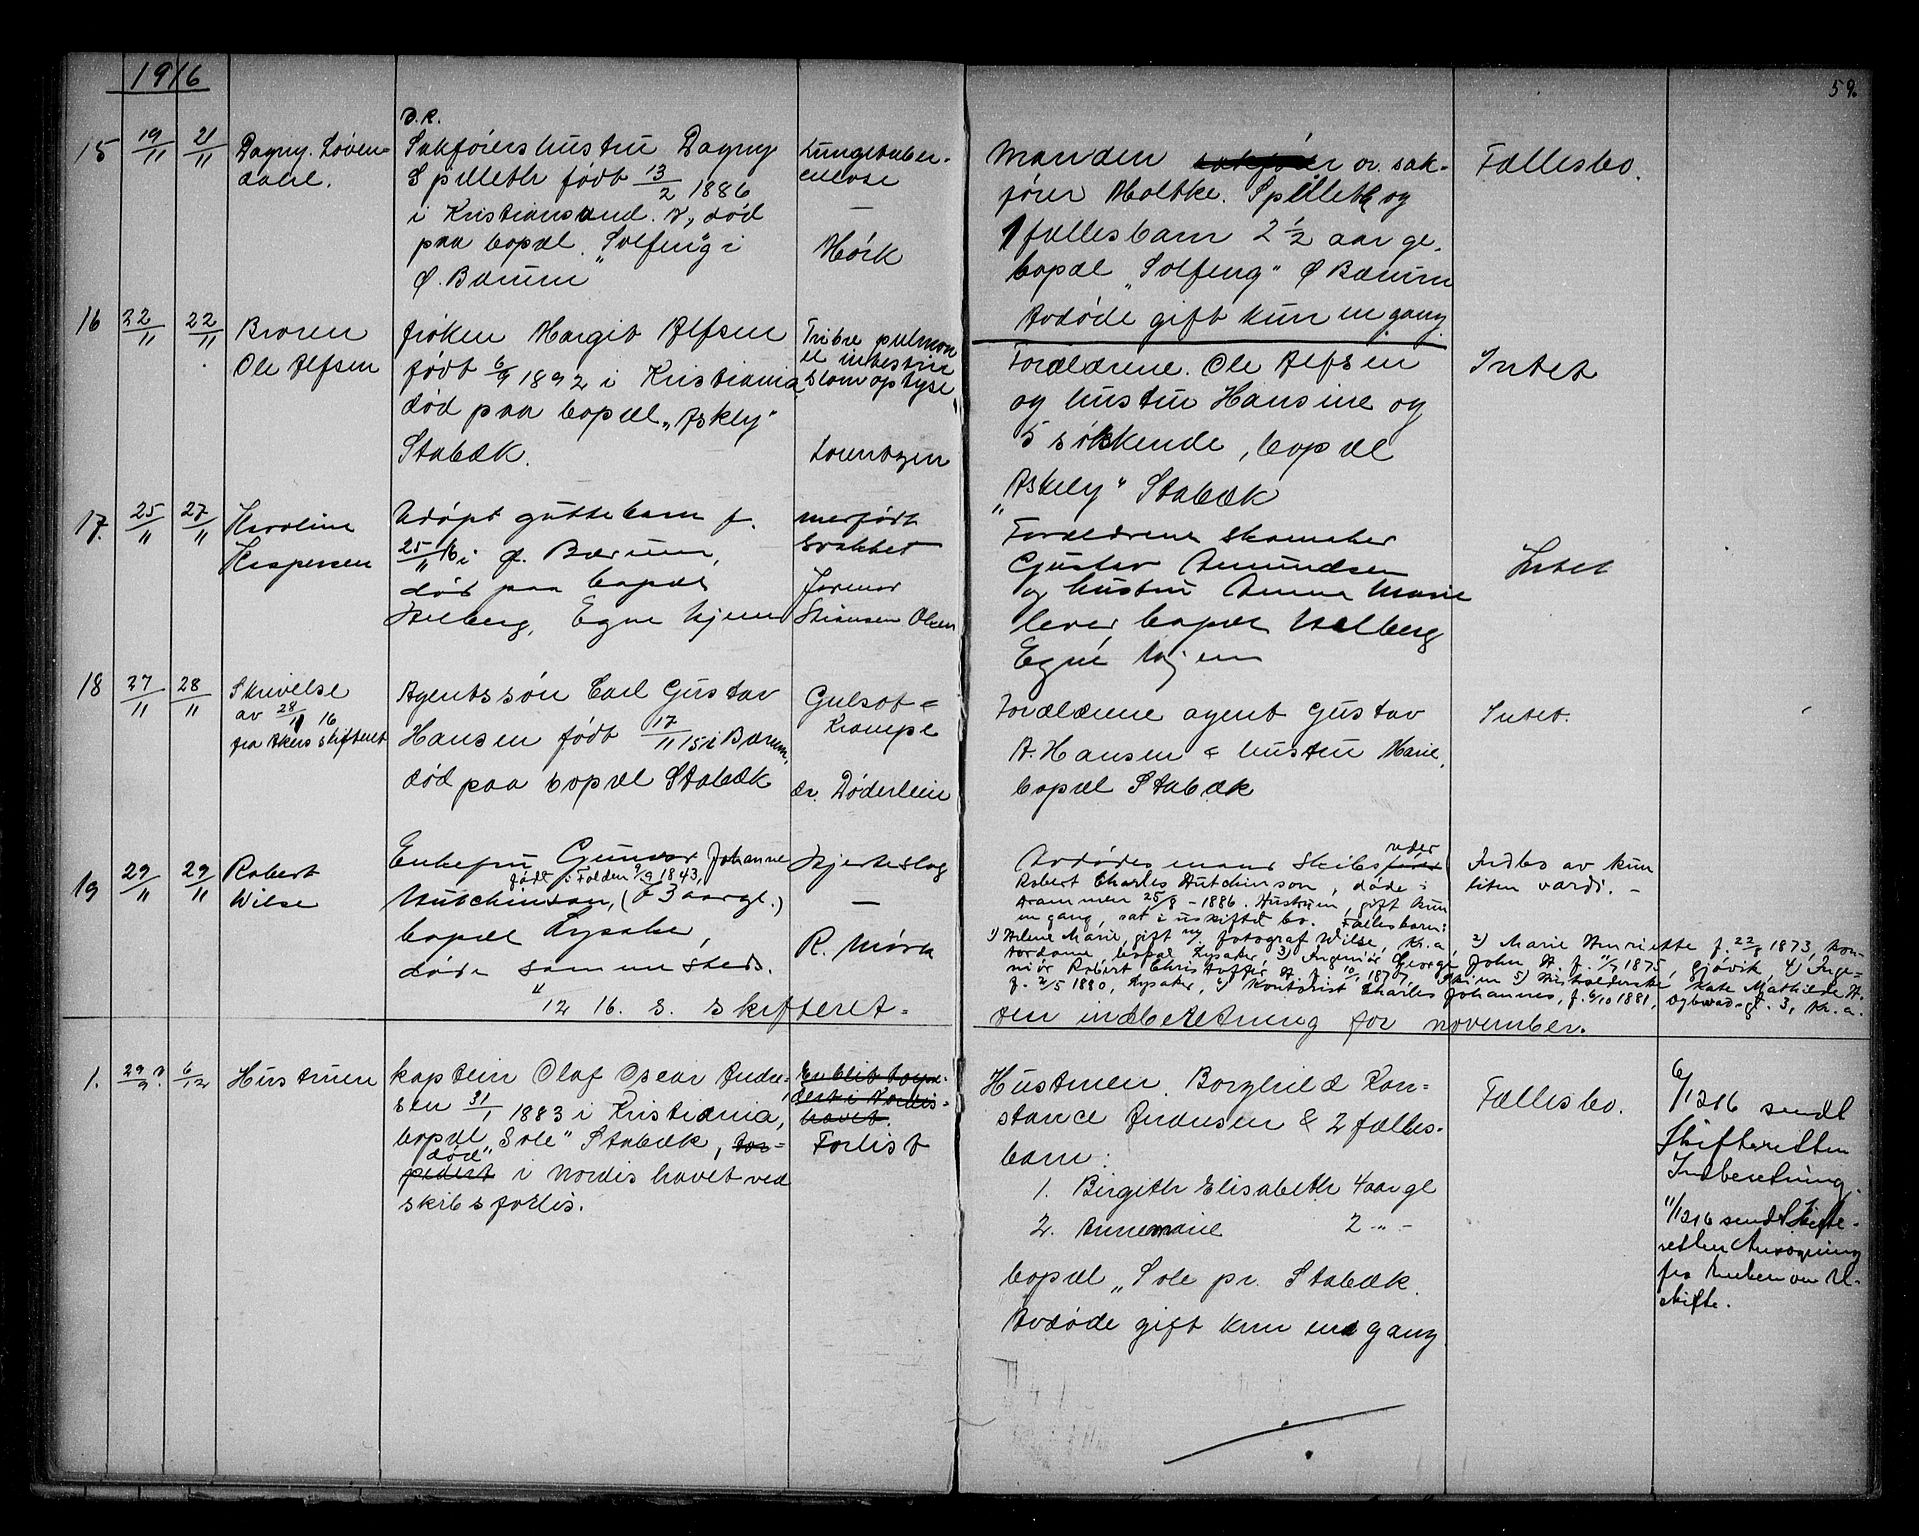 1916
59.
15 19/11 21/11 Dagny Løven-
dahl.
D.R.
Sakførershustru Dagny
Spilleth født 13/2 1886
i Kristiansund. N, død
paa bopæl. "Solfeng" i
Ø. Bærum
Lungetuber-
culose
—
Høik
Manden or. sak-
fører Moltke. Spilleth og
1 fællesbarn 2 1/2 aar gl.
bopæl "Solfeng" Ø Bærum
Avdøde gift kun en gang.
Fællesbo.
16 22/11 22/11 Broren
Ole Alfsen
frøken Margit Alfsen
født 6/9 1892 i Kristiania,
død paa bopæl "Askly"
Stabæk.
pulmon
et intestin
Lorentzen
Forældrene. Ole Alfsen
og hustru Hansine og
5 søskende, bopæl
"Askely" Stabæk
Intet
17. 25/11 27/11 Karoline
Kaspersen
Udøpt guttebarn f.
25/11 16 i Ø. Bærum,
død paa bopæl
Halberg, Egne hjem
medfødt
svakhet
Jormor
Olsen
Forældrene skomaker
Gustav Amundsen
og hustru Anna Marie
lever bopæl Halberg
Egne hjem
Intet
18 27/11 28/11 Skrivelse
av 28/11 16
fra Akers skifteret
Agentssøn Carl Gustav
Hansen født 17/11 15 i Bærum,
død paa bopæl Stabæk
Gulsot =
Krampe
dr. Døderlein
Forældrene agent Gustav
A. Hansen & hustru Marie,
bopæl Stabæk
Intet.
19 29/11 29/11 Robert
Wilse
Enkefru Gunvor Johanne
født i Folden 9/9 1843,
Hutchinson, (73 aar gl.)
bopæl Lysaker,
døde sammesteds.
11/12 16. s. skifteret.
Hjerteslag
—
R. Mørk
Avdødes mand Skibsreder
Robert Charles Hutchinson, døde i
Drammen 25/8 - 1886. Hustruen, gift kun
en gang, sat i uskiftet bo. Fællesbarn:
1) Helene Marie, gift m/ fotograf Wilse, Kr.a, 2) Marie Henriette f. 22/8 1873,
bopæl Lysaker, 3) Ingeniør George John H. f. 11/7 1875, Gjøvik, 4) Inge-
niør Robert Christoffer H. f. 10/1 1877, Skien 5) Kate Mathilde H.
f. 2/5 1880, Lysaker, 6) Kontorist Charles Johannes, f. 6/10 1881, gt. 3, Kr.a.
Indbo av kun
liten værdi. -
Den indberetning for november.
1. 29/9? 6/12 Hustruen
kaptein Olaf Oscar Andre-
sen 31/1 1883 i Kristiania,
bopæl "Sole" Stabæk, tor-
død
pedert i Nordishavet ved
skibsforlis.
En blit torpe-
dert i Nordis-
havet.
Forlist
Hustruen. Borghild Kon-
stance Andresen & 2 fælles-
barn:
1. Birgith Elisabeth 4 aar gl
2. Annemarie 2 -"-
bopæl "Sole pr. Stabæk.
Avdøde gift kun en gang
Fællesbo.
6/12 16 sendt
Skifteretten
Indberetning.
11/12 16 sendt Skifte-
retten Ansøgning
fra enken om U-
skifte.